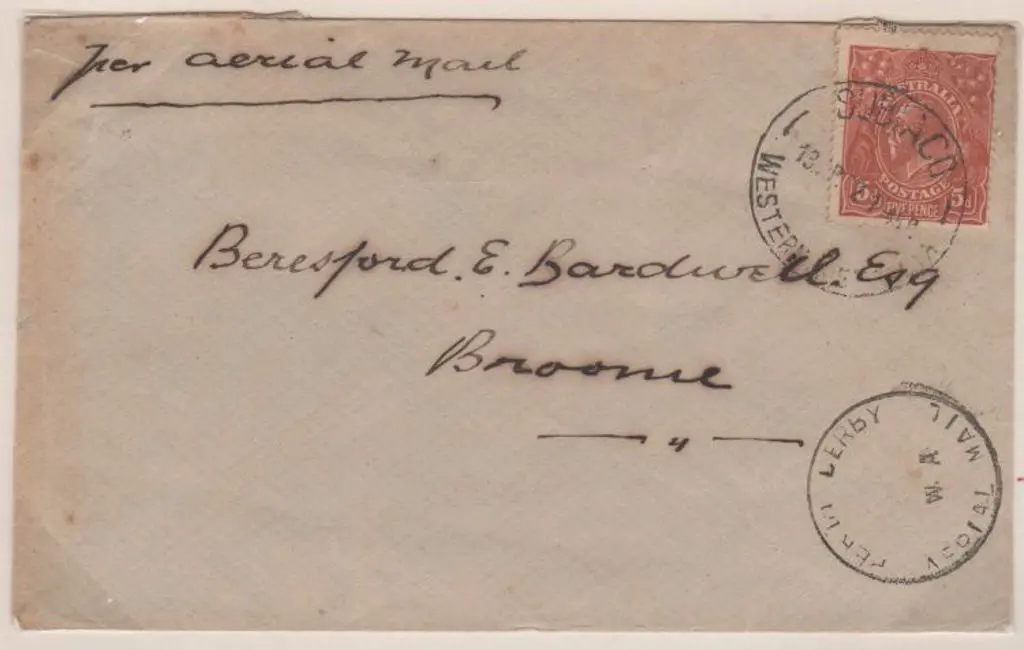 per aerial mail
AUSTRALIA
POSTAGE
5d 5d
FIVEPENCE
SUBIACO
WESTERN
Beresford. E. Bardwell. Esq
Broome
"
PERTH DERBY
AERIAL MAIL
W. A